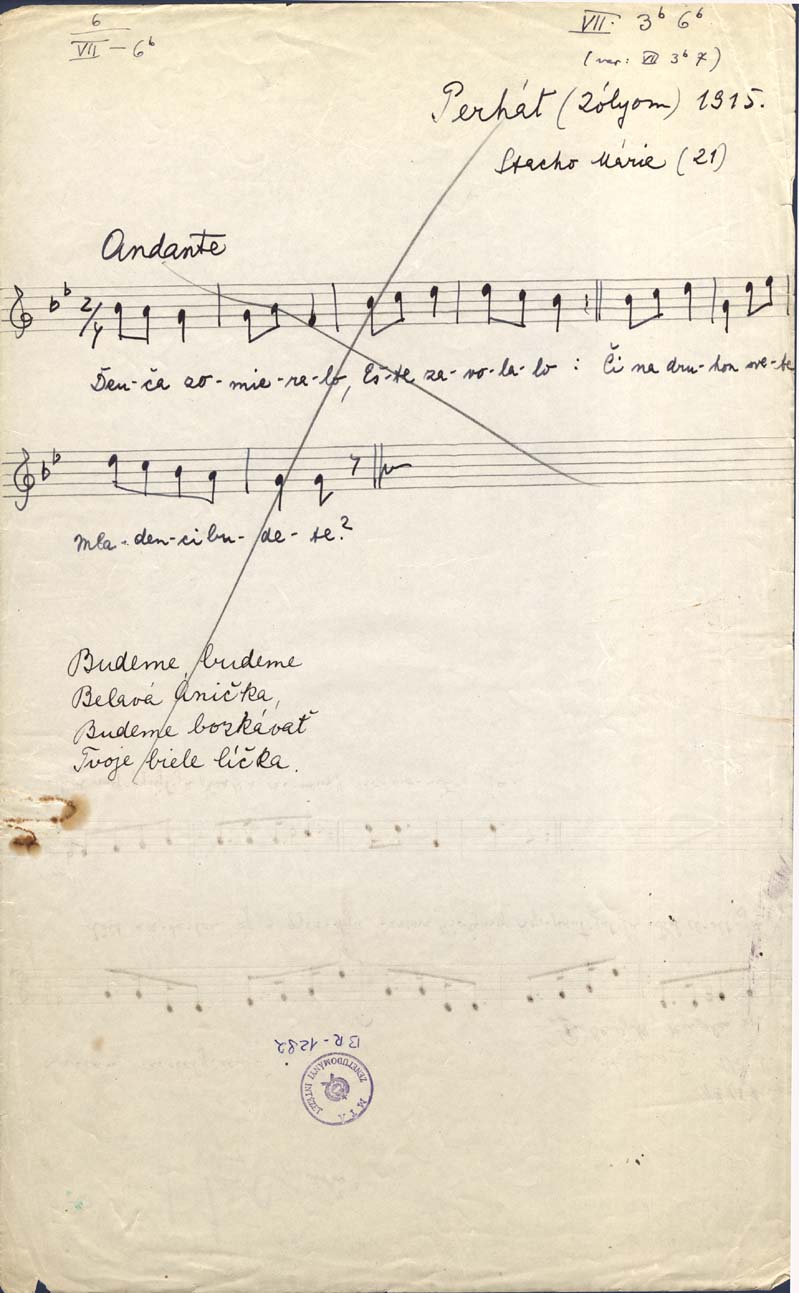 6
VII - 6ᵇ
VII. 3ᵇ 6ᵇ
(var: VII 3ᵇ 7)
Perhát (Zólyom) 1915.
Stacho Márie (21)
Andante
2/4
Ďeu-ča zo-mie-ra-lo, Eš-te za-vo-la-lo: Či na dru-hon sve-te
Mla-den-ci bu-de-te?
Budeme, budeme
Belavá Anička,
Budeme bozkávať
Tvoje biele líčka.
BR-1282
MTA ZENETUDOMÁNYI INTÉZET